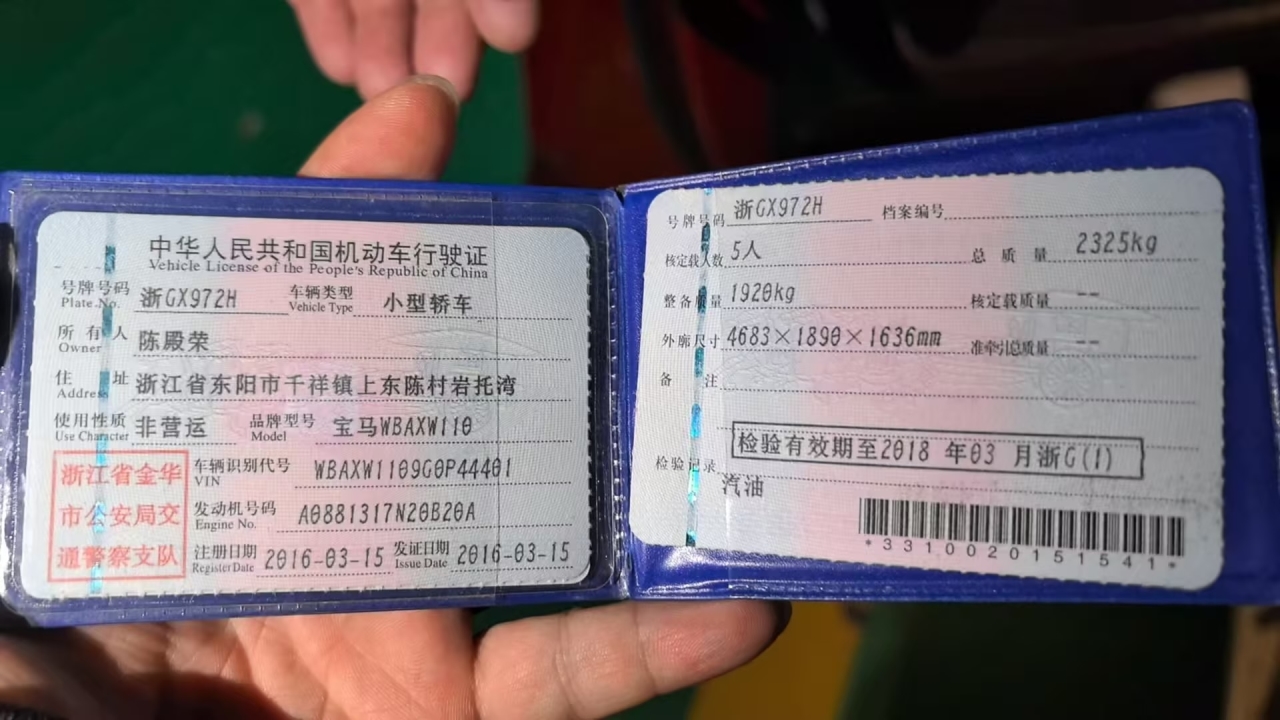 中华人民共和国机动车行驶证
Vehicle License of the People's Republic of China
号牌号码 浙GX972H 车辆类型 小型轿车
Plate No. Vehicle Type
所有人 陈殿荣
Owner
住址 浙江省东阳市千祥镇上东陈村岩托湾
Address
使用性质 非营运 品牌型号 宝马WBAXW110
Use Character Model
浙江省金华
市公安局交
通警察支队
车辆识别代号 WBAXW1109G0P44401
VIN
发动机号码 A0881317N20B20A
Engine No.
注册日期 2016-03-15 发证日期 2016-03-15
Register Date Issue Date
号牌号码 浙GX972H 档案编号
核定载人数 5人 总质量 2325kg
整备质量 1920kg 核定载质量 --
外廓尺寸 4683×1890×1636mm 准牵引总质量 --
备注
检验有效期至2018 年03 月浙G(1)
检验记录
汽油
*3310020151541*